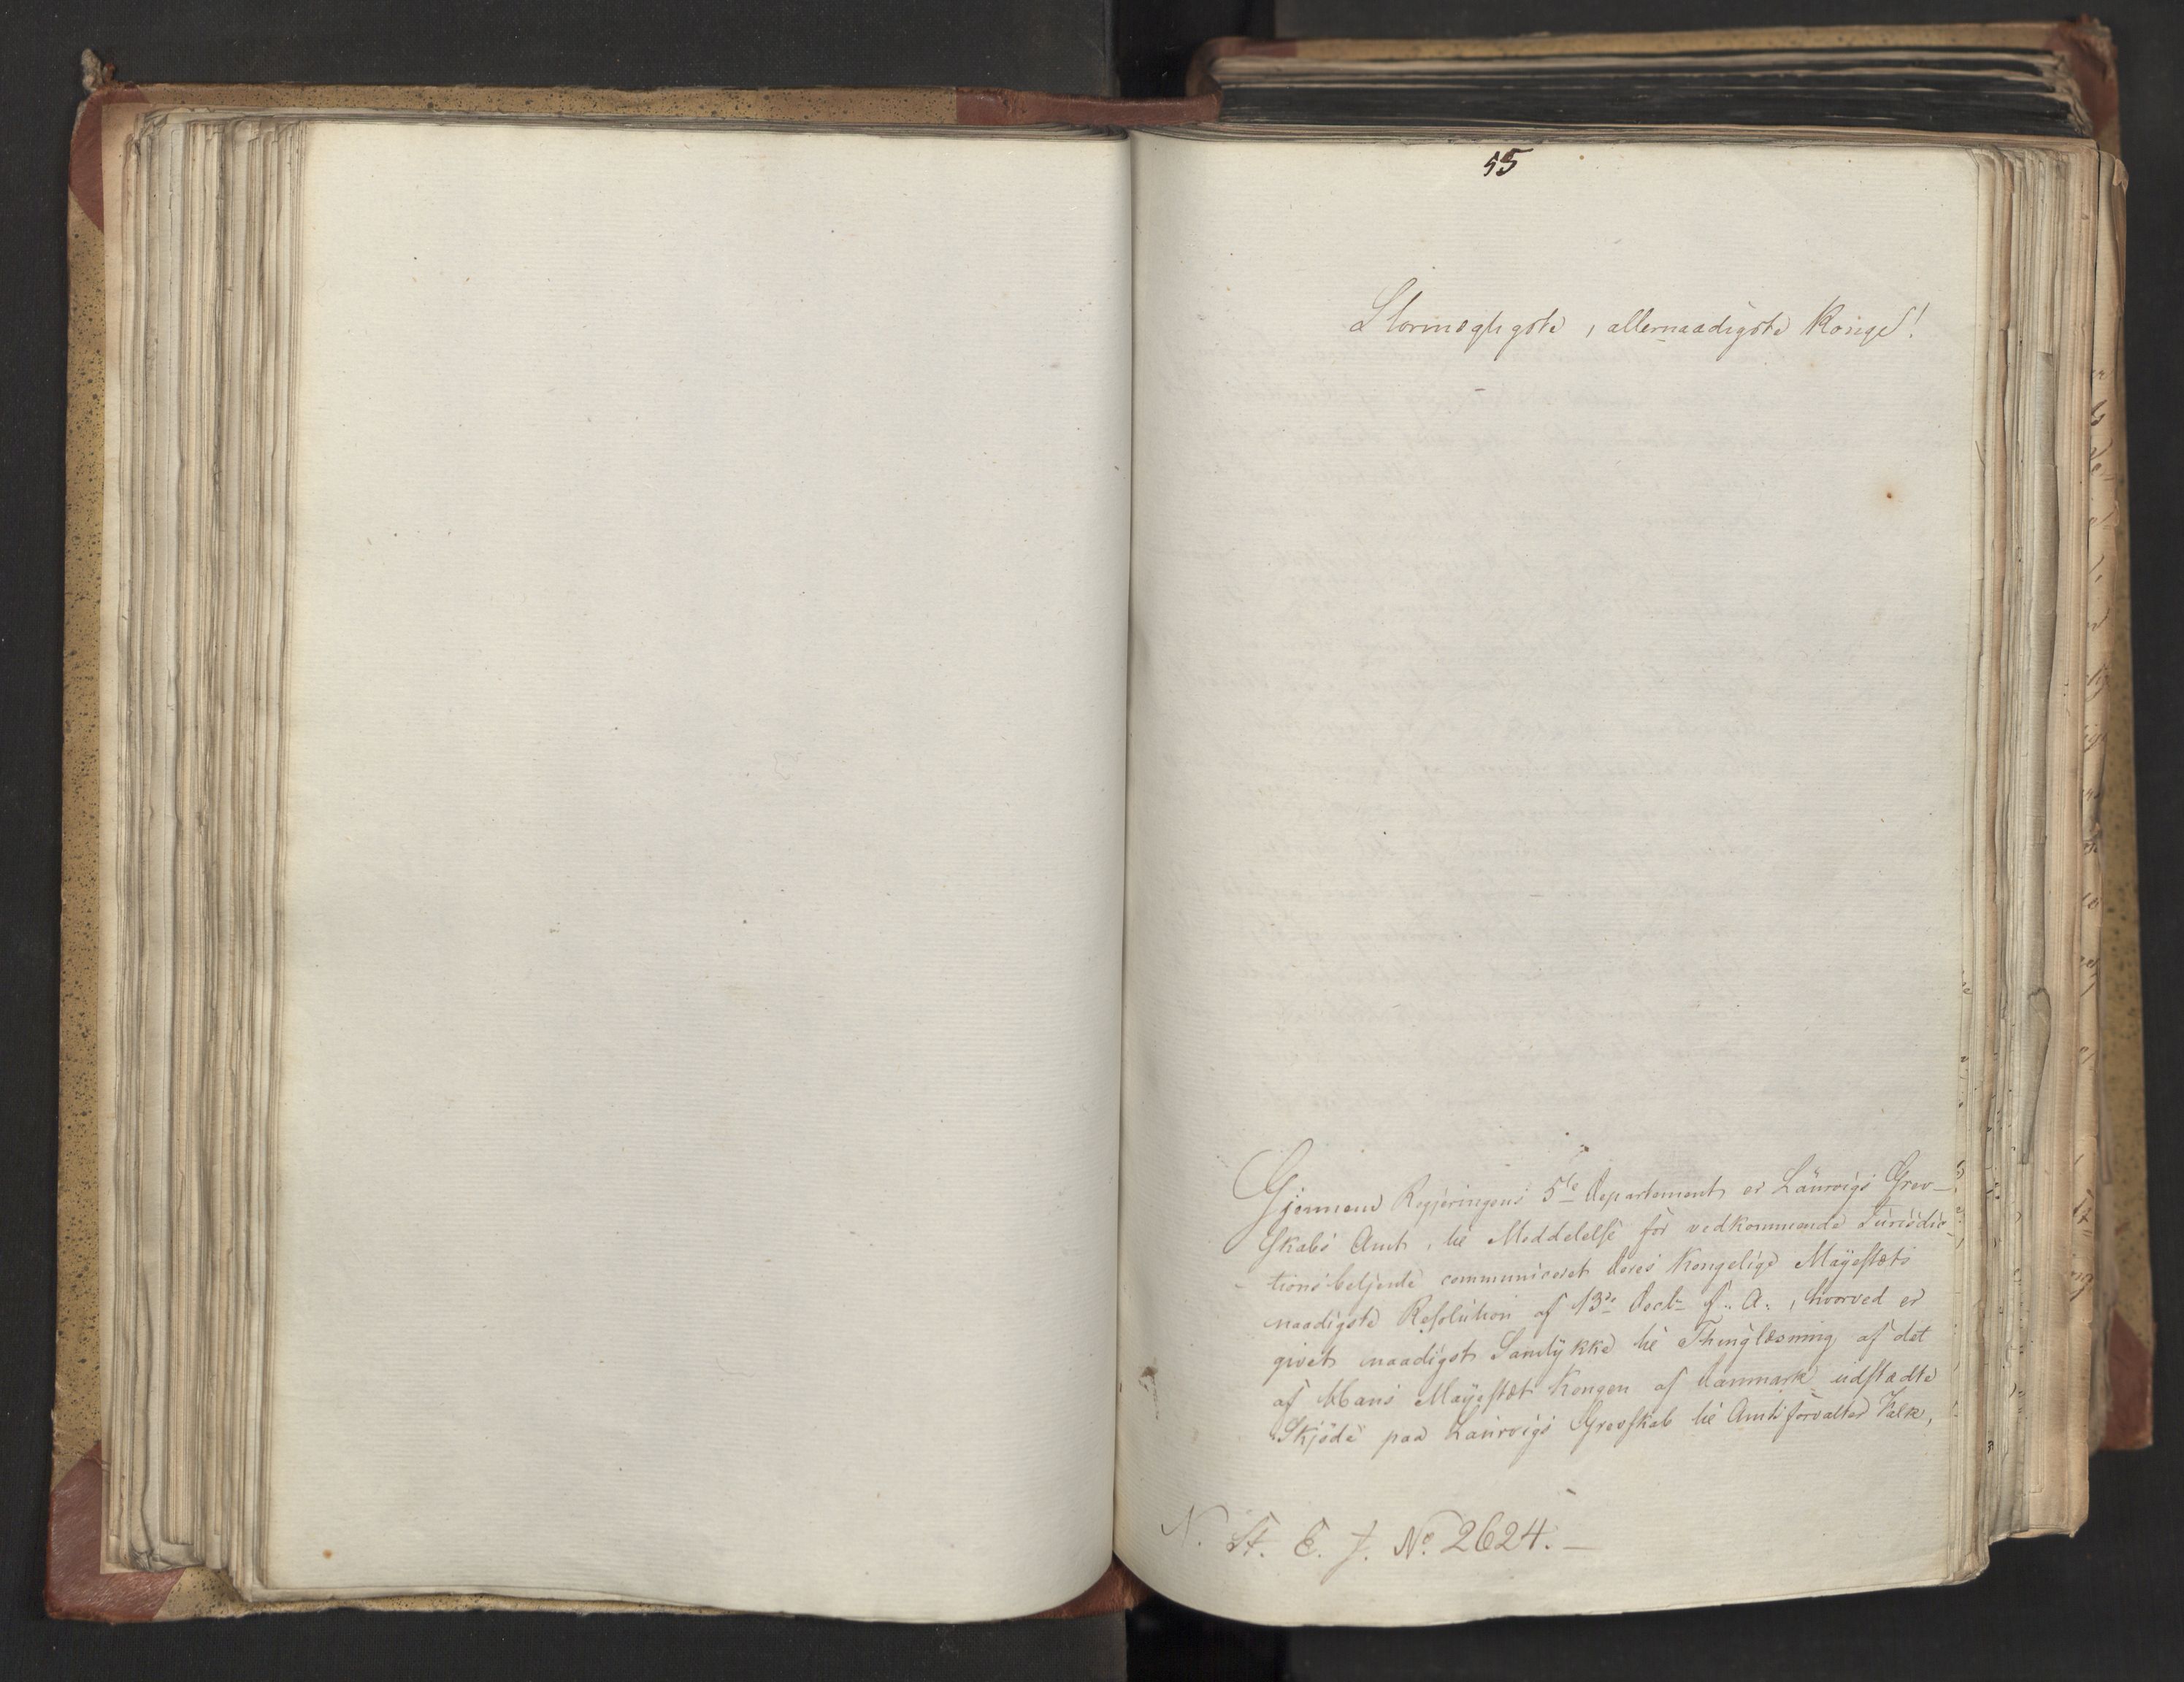 55
Stormægtigste, allernaadigste Konge!
Gjennem Regjeringens 5te Departement er Laurvigs Grev-
skabs Amt, til Meddelelse for vedkommende Jurisdic-
tionsbetjente communiceret Deres Kongelige Mayestæts
naadigste Resolution af 13de Decbr f. A., hvorved er
givet naadigst Samtykke til Thinglæsning af det
af Hans Mayestæt Kongen af Danmark udstædte
Skjøde paa Laurvigs Grevskab til Amtsforvalter Falk,
N. St. E. J. No. 2624.